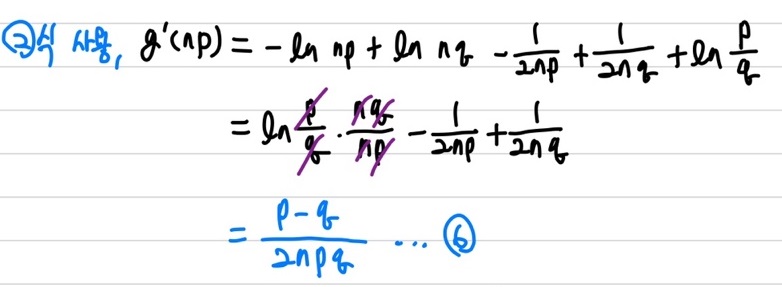 ②식 사용, g'(np) = - ln np + ln nq - 1/2np + 1/2nq + ln p/q
= ln p/q · nq/np - 1/2np + 1/2nq
= p-q/2npq ··· ⑥